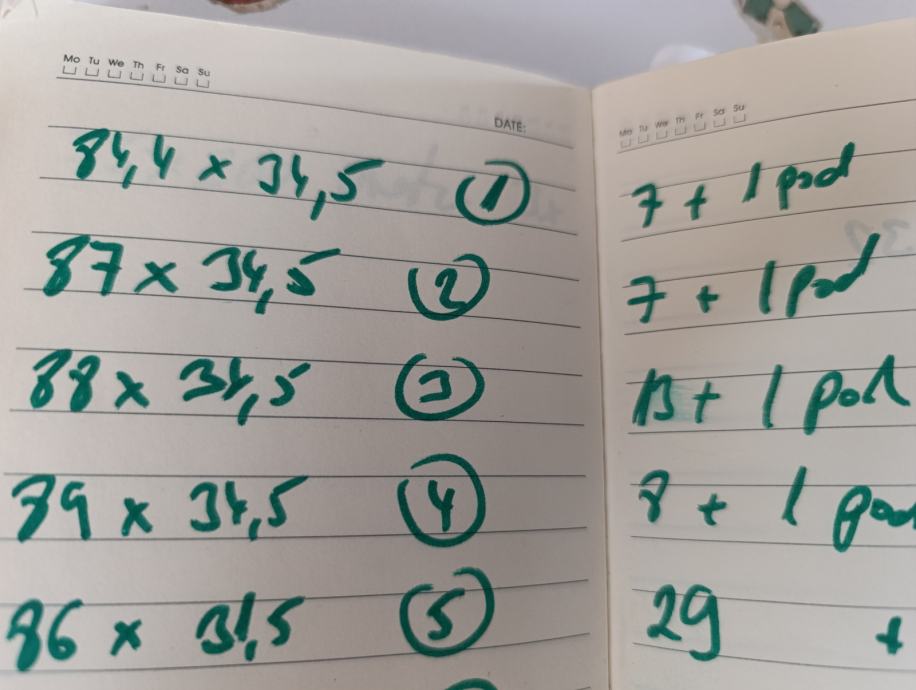 Mo Tu We Th Fr Sa Su
DATE:
84,4 x 34,5 ①
87 x 34,5 ②
88 x 34,5 ③
89 x 34,5 ④
86 x 31,5 ⑤
Mo Tu We Th Fr Sa Su
7 + 1 pod
7 + 1 pod
13 + 1 pod
8 + 1 pod
29 +